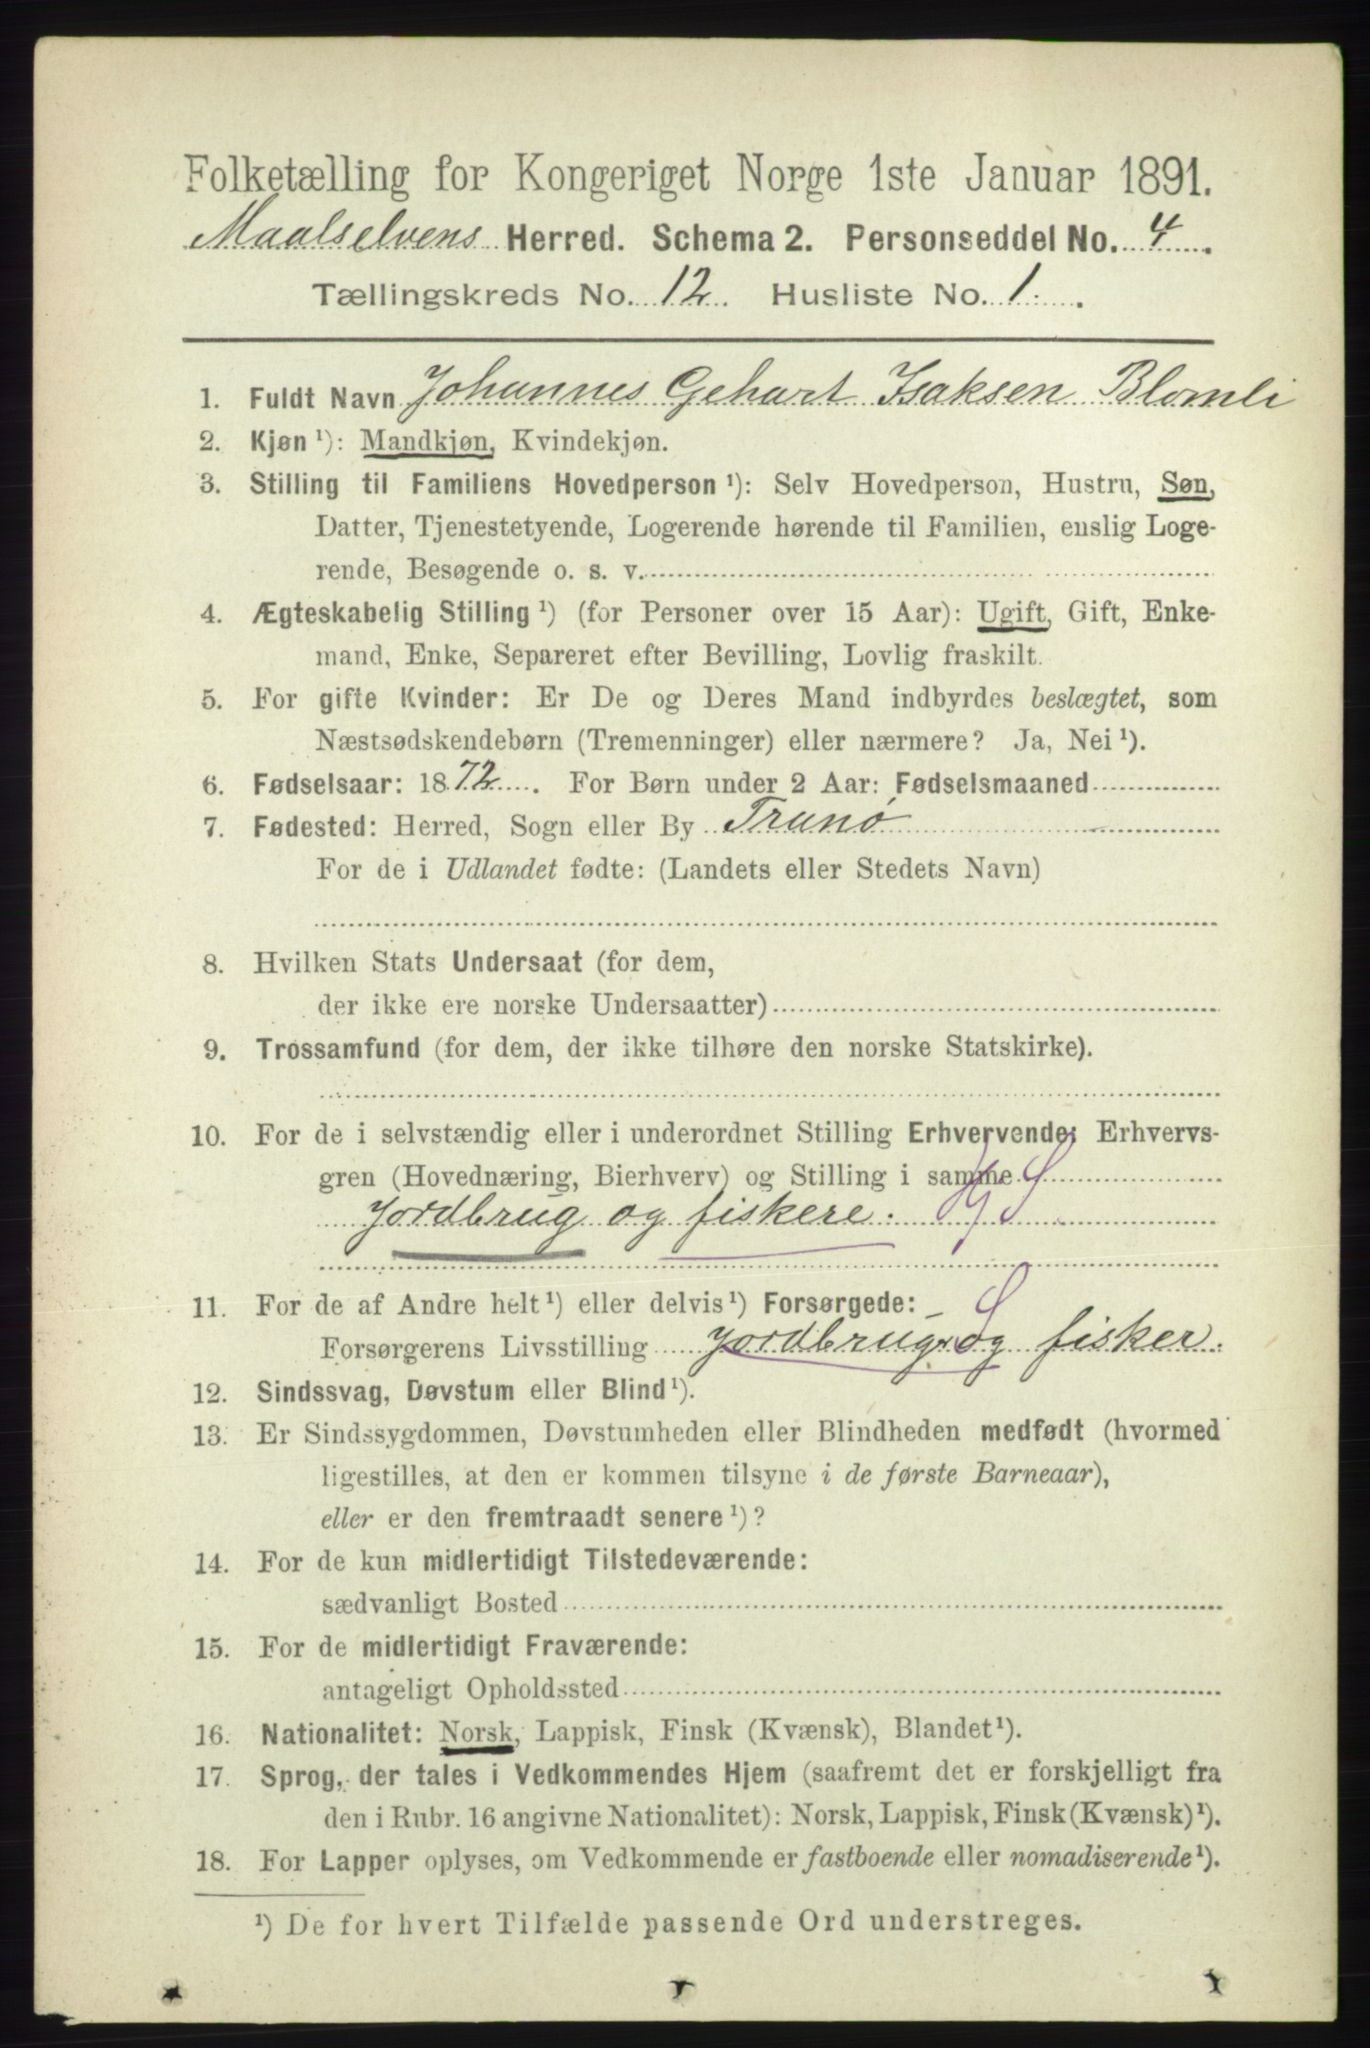 Folketælling for Kongeriget Norge 1ste Januar 1891.
Maalselvens Herred. Schema 2. Personseddel No. 4.
Tællingskreds No. 12. Husliste No. 1.
1. Fuldt Navn Johannes Gehart Isaksen Blomli
2. Kjøn ¹): Mandkjøn, Kvindekjøn.
3. Stilling til Familiens Hovedperson ¹): Selv Hovedperson, Hustru, Søn,
Datter, Tjenestetyende, Logerende hørende til Familien, enslig Loge-
rende, Besøgende o. s. v.
4. Ægteskabelig Stilling ¹) (for Personer over 15 Aar): Ugift, Gift, Enke-
mand, Enke, Separeret efter Bevilling, Lovlig fraskilt.
5. For gifte Kvinder: Er De og Deres Mand indbyrdes beslægtet, som
Næstsødskendebørn (Tremenninger) eller nærmere? Ja, Nei ¹).
6. Fødselsaar: 1872. For Børn under 2 Aar: Fødselsmaaned
7. Fødested: Herred, Sogn eller By Tranø
For de i Udlandet fødte: (Landets eller Stedets Navn)
8. Hvilken Stats Undersaat (for dem,
der ikke ere norske Undersaatter)
9. Trossamfund (for dem, der ikke tilhøre den norske Statskirke).
10. For de i selvstændig eller i underordnet Stilling Erhvervende: Erhvervs-
gren (Hovednæring, Bierhverv) og Stilling i samme S
Jordbrug og fiskere.
11. For de af Andre helt ¹) eller delvis ¹) Forsørgede: S
Forsørgerens Livsstilling Jordbrug og fisker.
12. Sindssvag, Døvstum eller Blind ¹).
13. Er Sindssygdommen, Døvstumheden eller Blindheden medfødt (hvormed
ligestilles, at den er kommen tilsyne i de første Barneaar),
eller er den fremtraadt senere ¹)?
14. For de kun midlertidigt Tilstedeværende:
sædvanligt Bosted
15. For de midlertidigt Fraværende:
antageligt Opholdssted
16. Nationalitet: Norsk, Lappisk, Finsk (Kvænsk), Blandet ¹).
17. Sprog, der tales i Vedkommendes Hjem (saafremt det er forskjelligt fra
den i Rubr. 16 angivne Nationalitet): Norsk, Lappisk, Finsk (Kvænsk) ¹).
18. For Lapper oplyses, om Vedkommende er fastboende eller nomadiserende ¹).
¹) De for hvert Tilfælde passende Ord understreges.